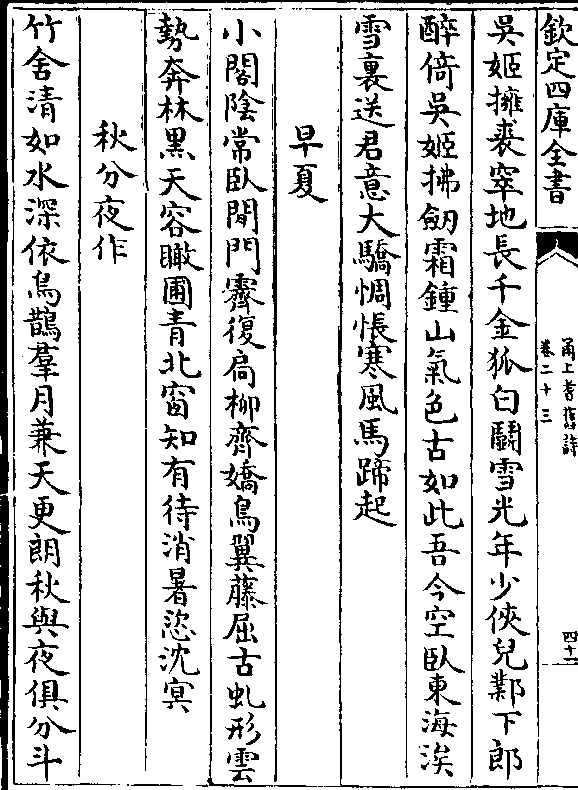 欽定四庫全書
甬上耆舊詩
卷二十三
四十一
吳姬擁裘窣地長千金狐白鬭雪光年少俠兒鄴下郎
醉倚吳姬拂劒霜鍾山氣色古如此吾今空臥東海涘
雪裏送君意大驕惆悵寒風馬蹄起
早夏
小閣陰常臥閒門霽復扃柳齊嬌鳥翼藤屈古虬形雲
勢奔林黑天容瞰圃青北窗知有待消暑恣沈冥
秋分夜作
竹舍清如水深依烏鵲羣月兼天更朗秋與夜俱分斗